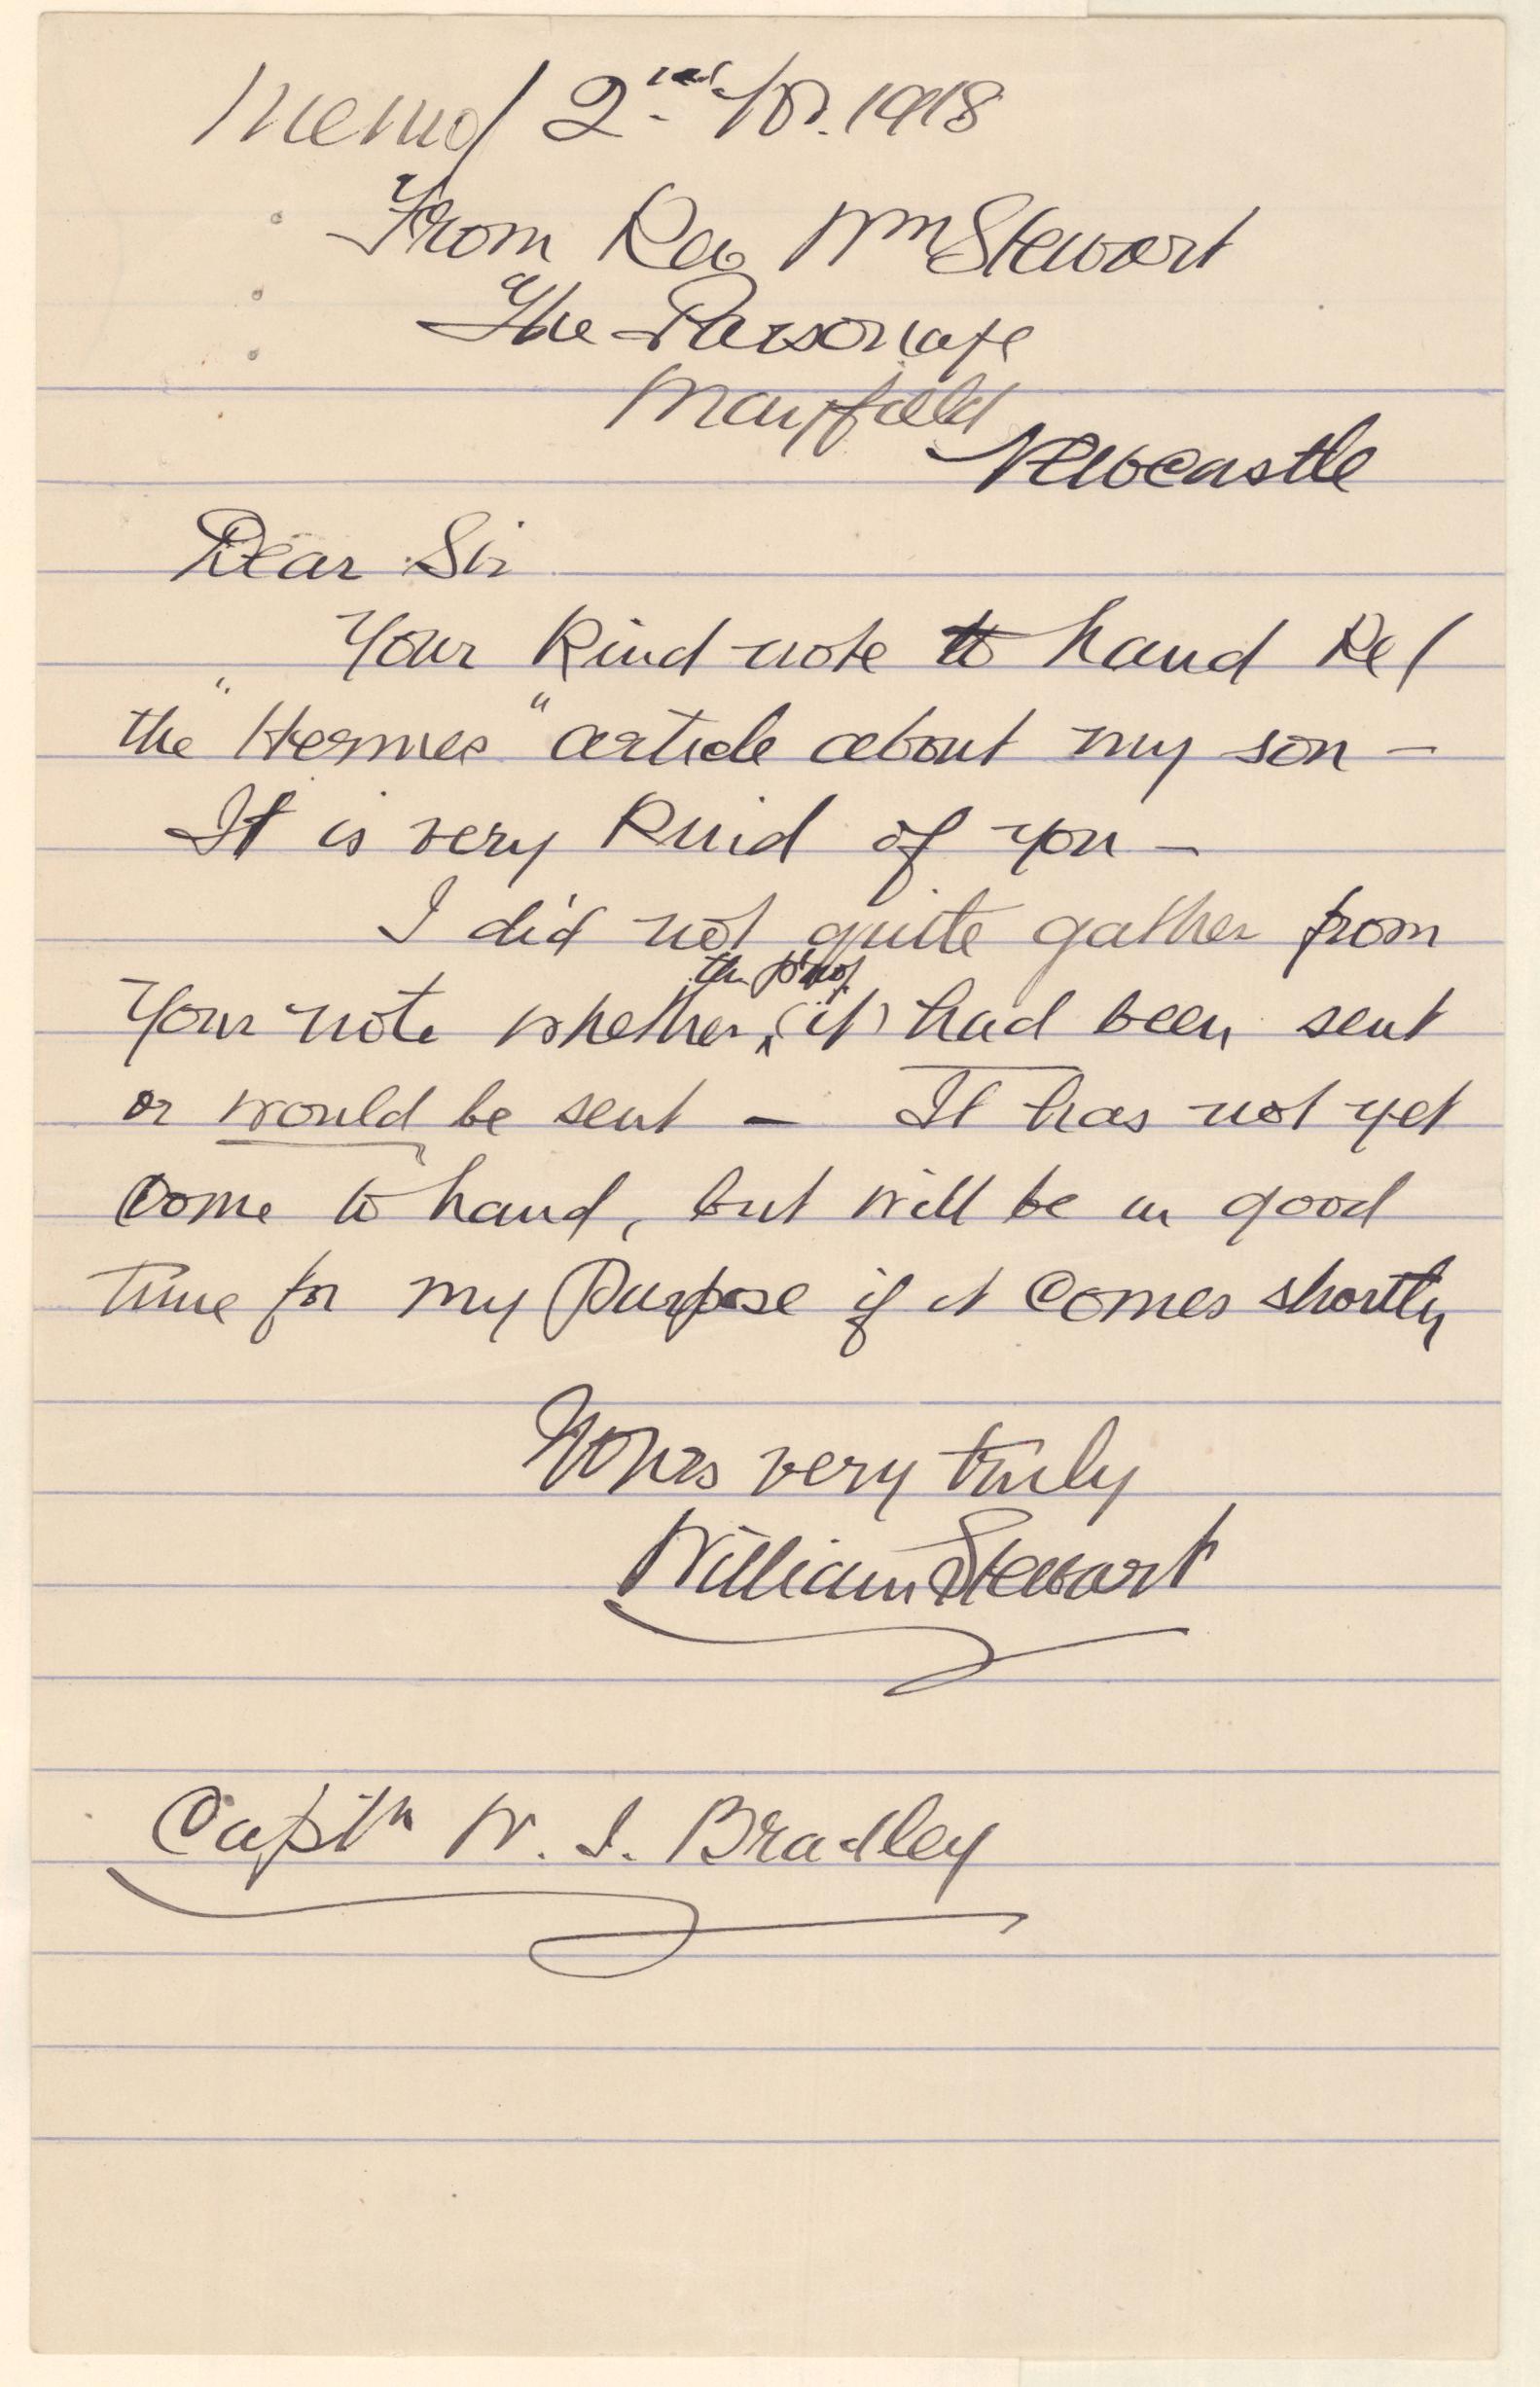 Memo/ 2nd /8. 1918
From Rev Wm Stewart
The Parsonage
Mayfield
Newcastle
Dear Sir
Your kind note to hand Re/
the "Hermes" article about my son —
It is very kind of you —
I did not quite gather from
the proof
your note whether (it) had been sent
or would be sent — It has not yet
come to hand, but will be in good
time for my purpose if it comes shortly
Yours very truly
William Stewart
Captn W. J. Bradley